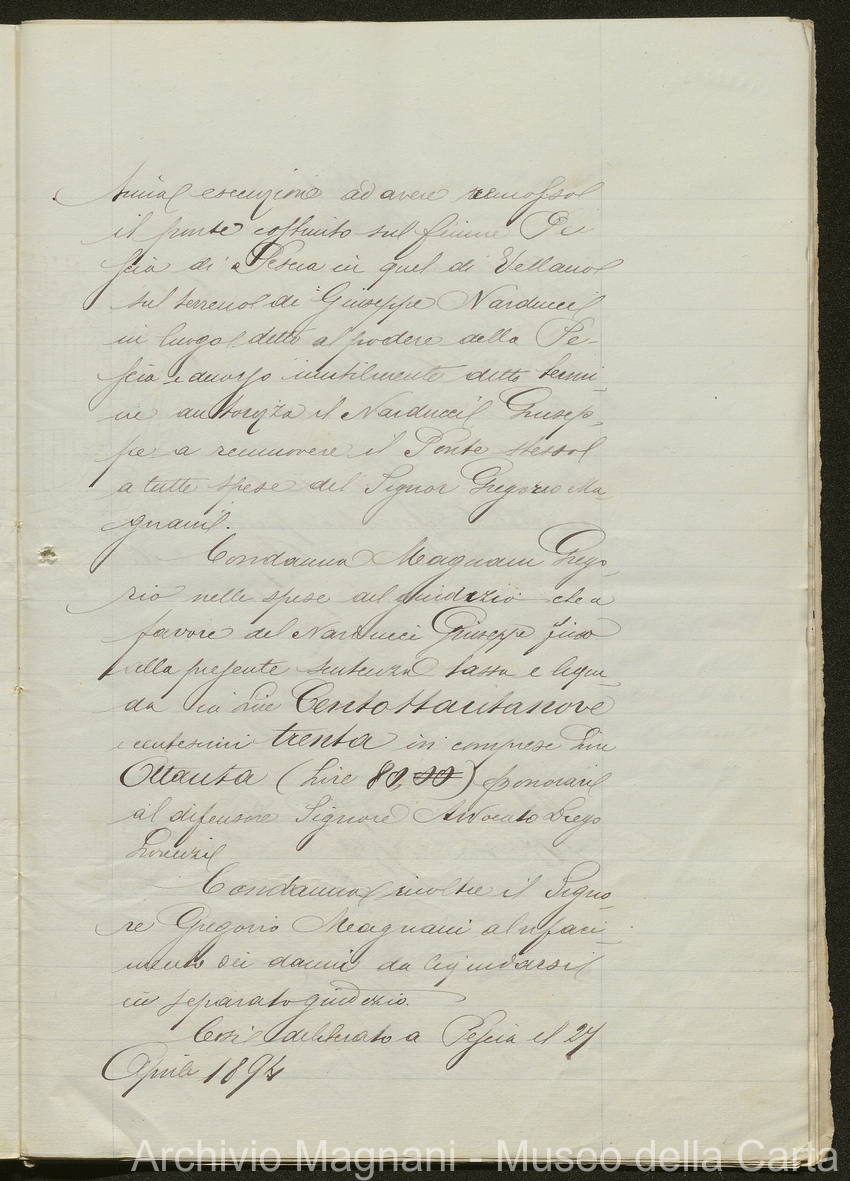 esecuzione ad avere remosso
il ponte costruito sul fiume Pe-
scia di Pescia in quel di Vellano
sul terreno di Giuseppe Narducci
in luogo detto al podere della Pe-
scia e decorso inutilmente detto termi-
ne autorizza il Narducci Giusep-
pe a remuovere il Ponte stesso
a tutte spese del Signor Gregorio Ma-
gnani.
Condanna Magnani Grego-
rio nelle spese del giudizio che a
favore del Narducci Giuseppe fino
alla presente sentenza tassa e liqui-
da in Lire Centottantanove
e centesimi trenta ivi comprese Lire
Ottanta (Lire 80,00) onorari
al difensore Signore Avvocato
Lorenzi
Condanna inoltre il Signo-
re Gregorio Magnani al rifaci-
mento dei danni da liquidarsi
in separato giudizio.
Così deliberato a Pescia il 27
Aprile 1894
Archivio Magnani - Museo della Carta